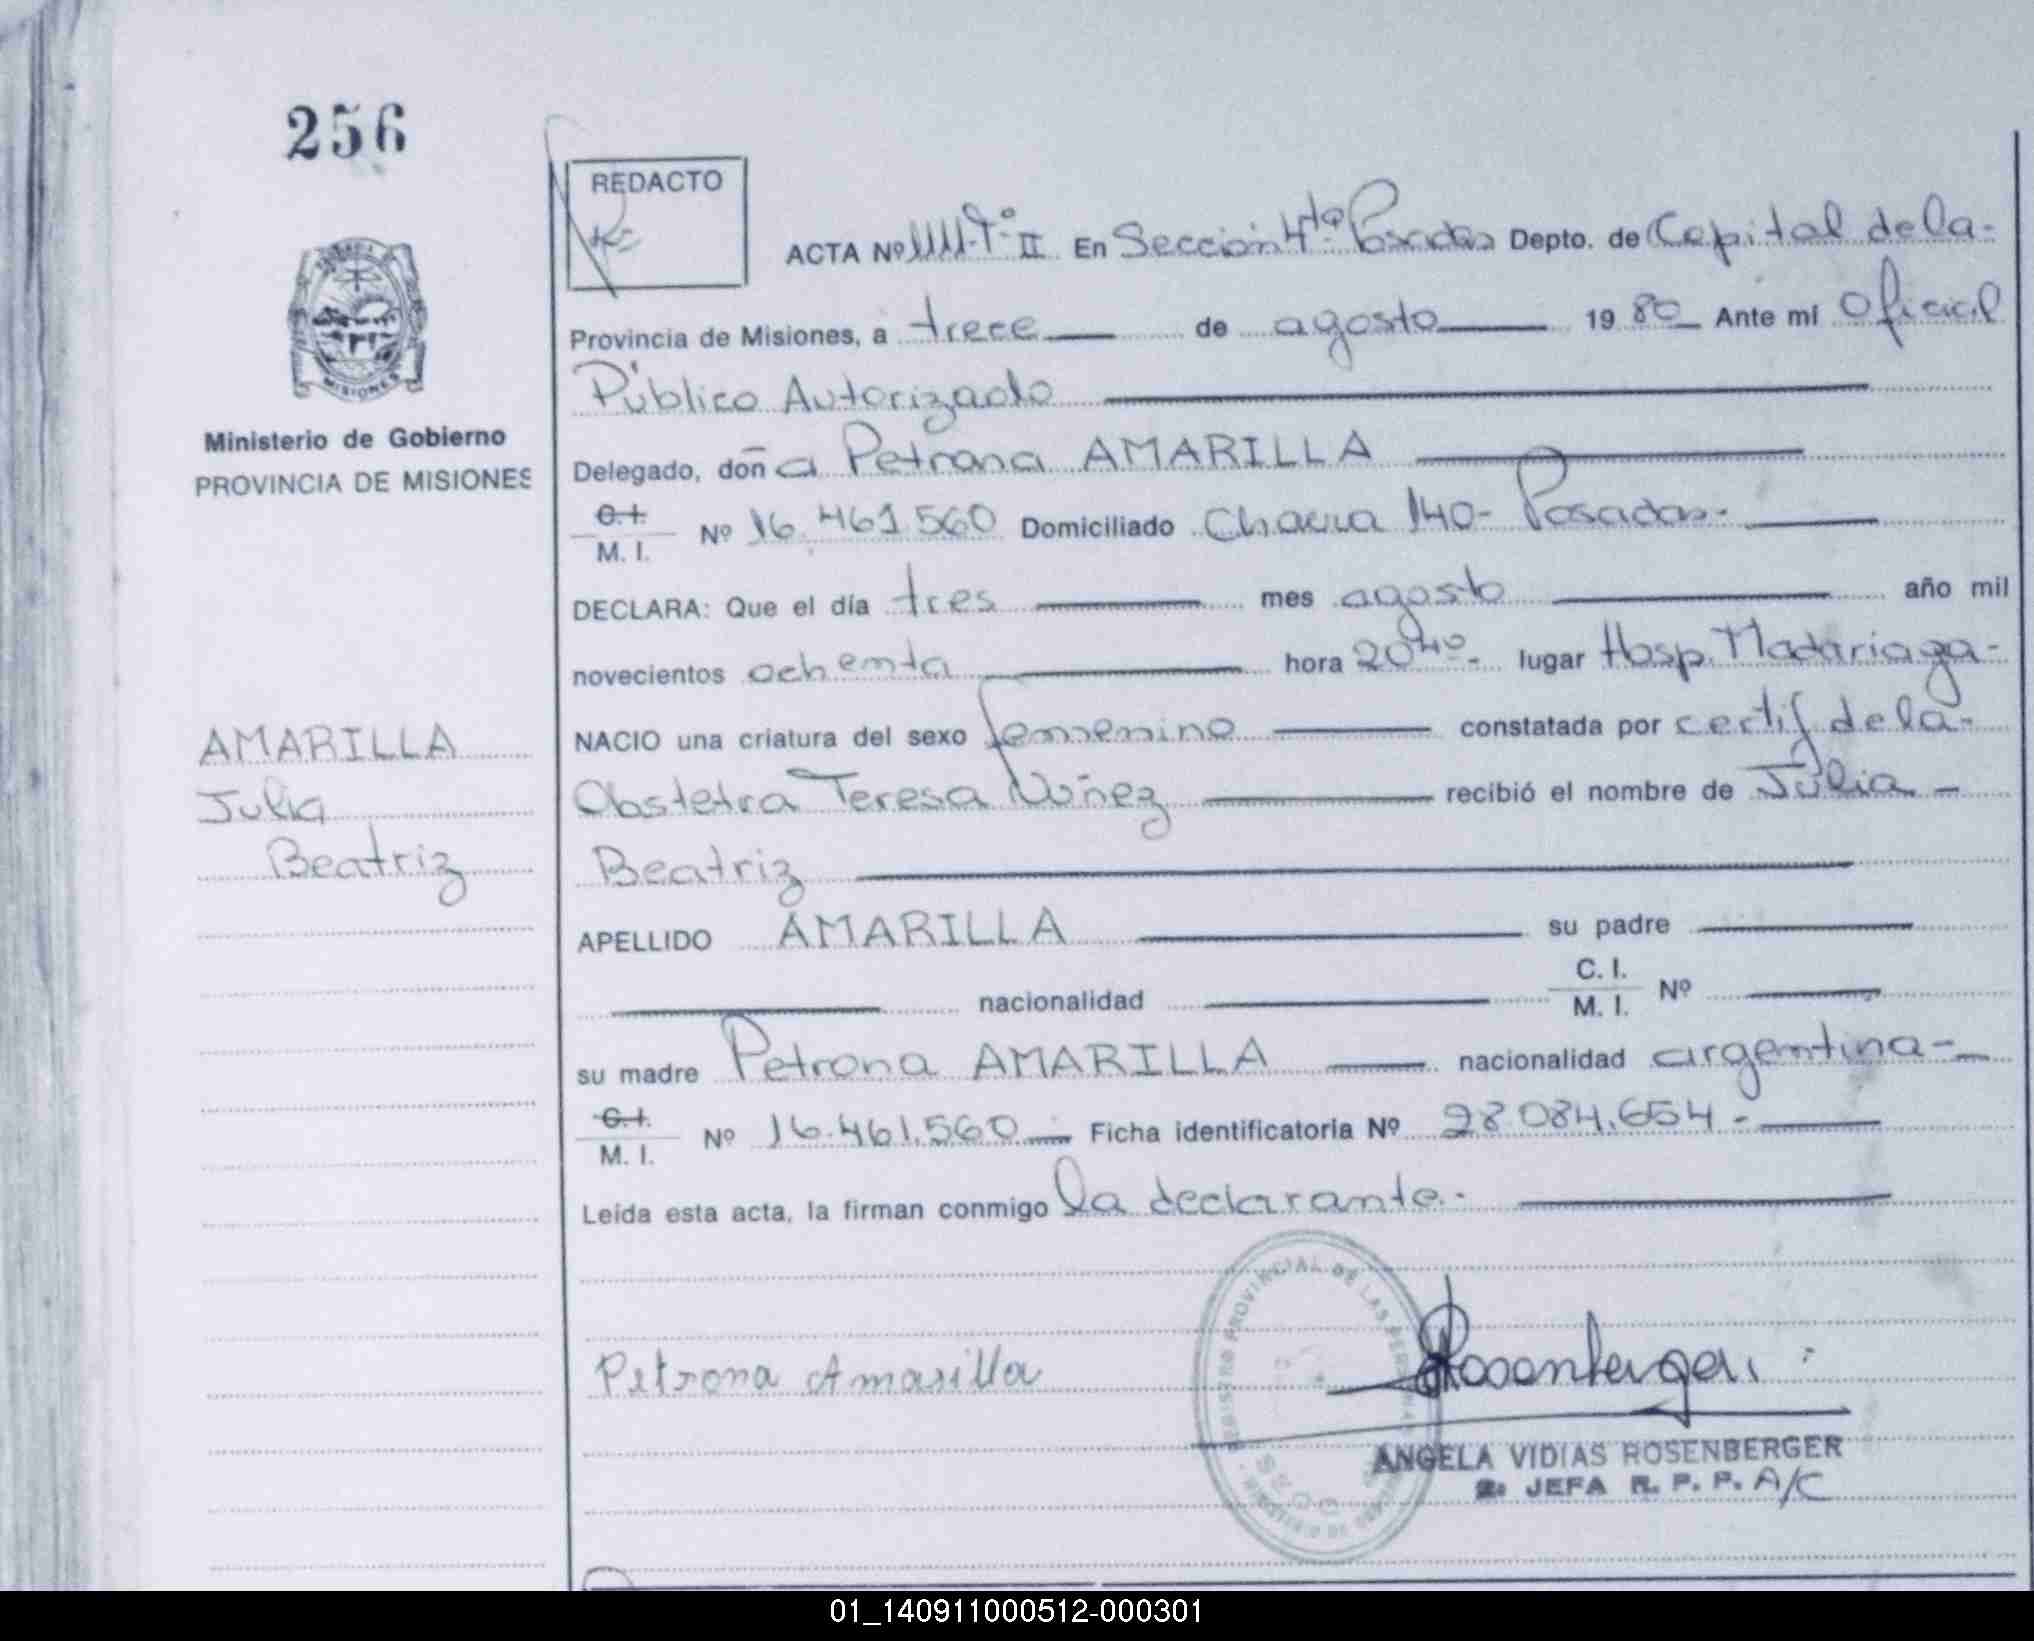 256
REDACTO
ACTA Nº 1111-Tº II En Sección 4ta Posadas Depto. de Capital de la-
Provincia de Misiones, a trece de agosto 1980 Ante mi Oficial
Público Autorizado
Delegado, doña Petrona AMARILLA
C.I. M. I. Nº 16.461.560 Domiciliado Chacra 140- Posadas-
DECLARA: Que el día tres mes agosto año mil
novecientos ochenta hora 20 40- lugar Hosp. Madariaga-
NACIO una criatura del sexo femenino constatada por certif de la-
Obstetra Teresa Núñez recibió el nombre de Julia -
Beatriz
APELLIDO AMARILLA su padre
nacionalidad C. I. M. I. Nº
su madre Petrona AMARILLA nacionalidad argentina-
C.I. M. I. Nº 16.461.560 Ficha identificatoria Nº 28084.654-
Leída esta acta, la firman conmigo la declarante.-
Petrona Amarilla
Rosenberger
ANGELA VIDIAS ROSENBERGER
2: JEFA R. P. P. A/C
MISIONES
Ministerio de Gobierno
PROVINCIA DE MISIONES
AMARILLA
Julia
Beatriz
REGISTRO PROVINCIAL DE LAS PERSONAS
01_140911000512-000301